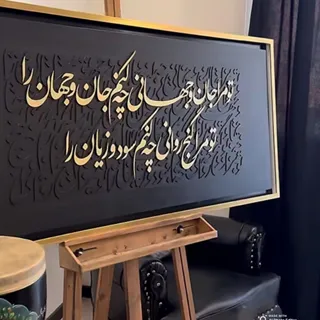 تو مرا جان و جهانی چه کنم جان و جهان را
تو مرا گنج روانی چه کنم سود و زیان را